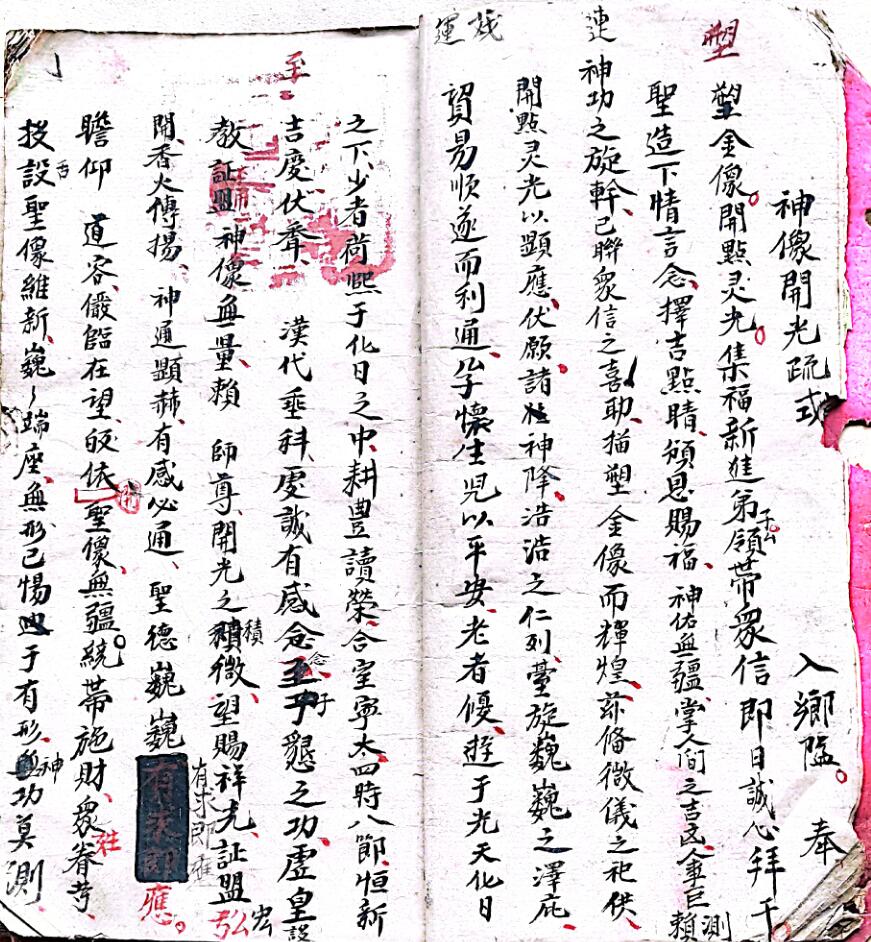 神像開光疏式　入鄉隘。奉
塑金像開點灵光。集福新進弟領帶衆信即日誠心拜干
聖造下情言念擇吉點睛頒恩賜福神佑無疆掌人間之吉凶人事巨測賴
神功之旋幹已聯衆信之喜助描塑金像而輝煌茲俻微儀之祀供
開點灵光以顕應伏願諸神降浩浩之仁列臺旋巍巍之澤庇
貿易順遂而利通孕懷生児以平安老者優遊于光天化日
之下少者荷熙于化日之中耕豊讀榮合室寧太四時八節恒新
吉慶伏聳漢代垂科虔誠有感念至子懇之功虛皇設
教証盟神像無量賴師尊開光之積微望賜祥光証盟
開香火傳揚神通顕赫有感必通聖德巍巍有求即應。
瞻仰道容儼臨在望皈依聖像無疆統帯施財衆眷等
投設聖像維新巍々端座無形已惕迪于有形神功莫測
塑
連
運
至
有求即應